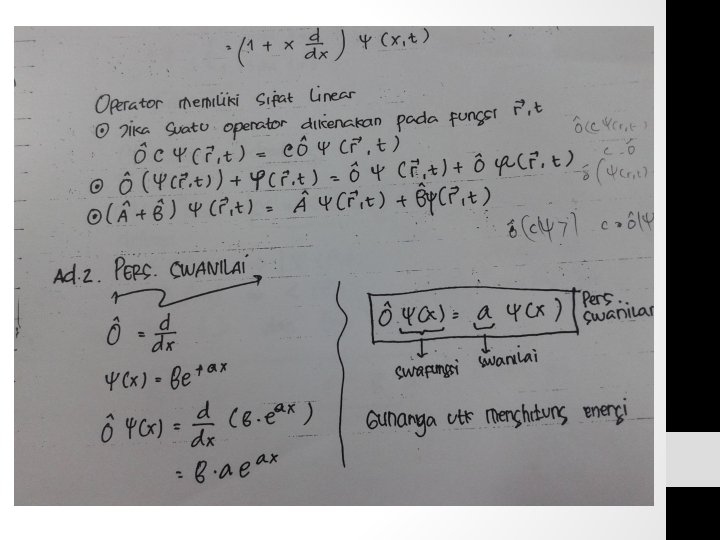 = (1 + x d/dx) ψ(x,t)
Operator memiliki sifat Linear
⊙ Jika suatu operator dikenakan pada fungsi r⃗,t
Ô c ψ(r⃗,t) = c Ô ψ(r⃗,t)
⊙ Ô (ψ(r⃗,t)) + φ(r⃗,t) = Ô ψ (r⃗,t) + Ô φ(r⃗,t)
⊙ (Â + B̂) ψ(r⃗,t) = Â ψ(r⃗,t) + B̂ψ(r⃗,t)
Ô(cψ(r,t)
c Ô
Ô(ψ(r,t)
Ô(c|ψ>)
Ad.2. PERS. SWANILAI
Ô = d/dx
ψ(x) = Be^{+ax}
Ô ψ(x) = d/dx (B·e^{ax})
= B·a e^{ax}
Ô ψ(x) = a ψ(x)
Pers.
swanilai
swafungsi swanilai
Gunanya utk menghitung energi